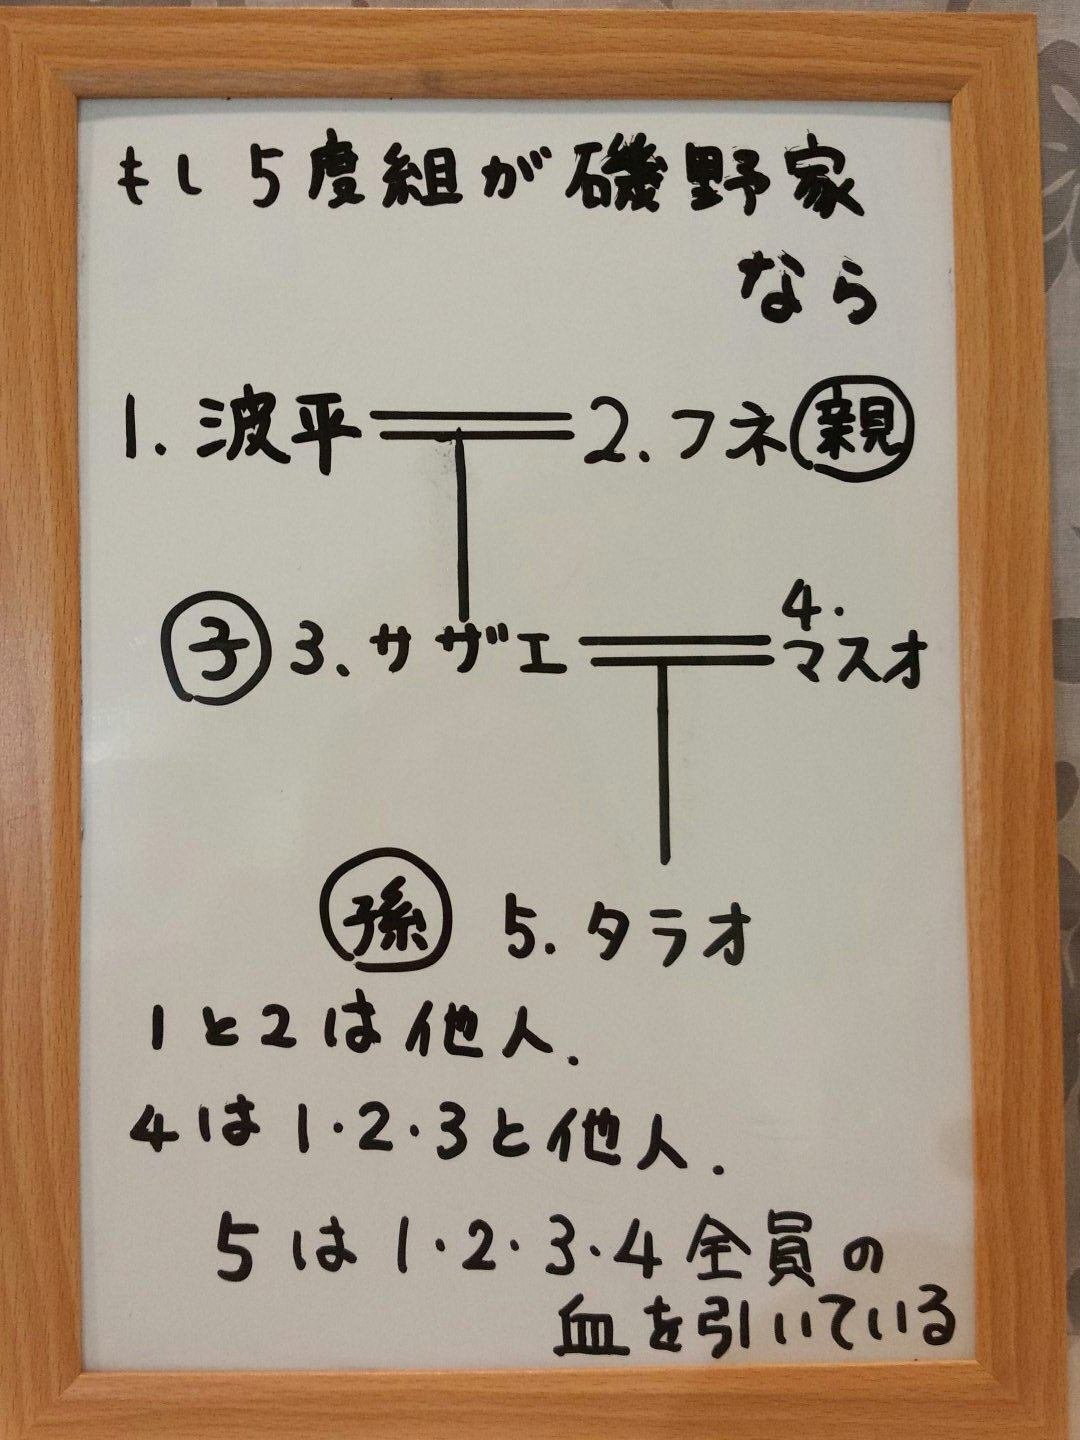 もし5度組が磯野家
なら
1.波平 2.フネ 親
子 3.サザエ 4.マスオ
孫 5.タラオ
1と2は他人.
4は1・2・3と他人.
5は1・2・3・4全員の
血を引いている